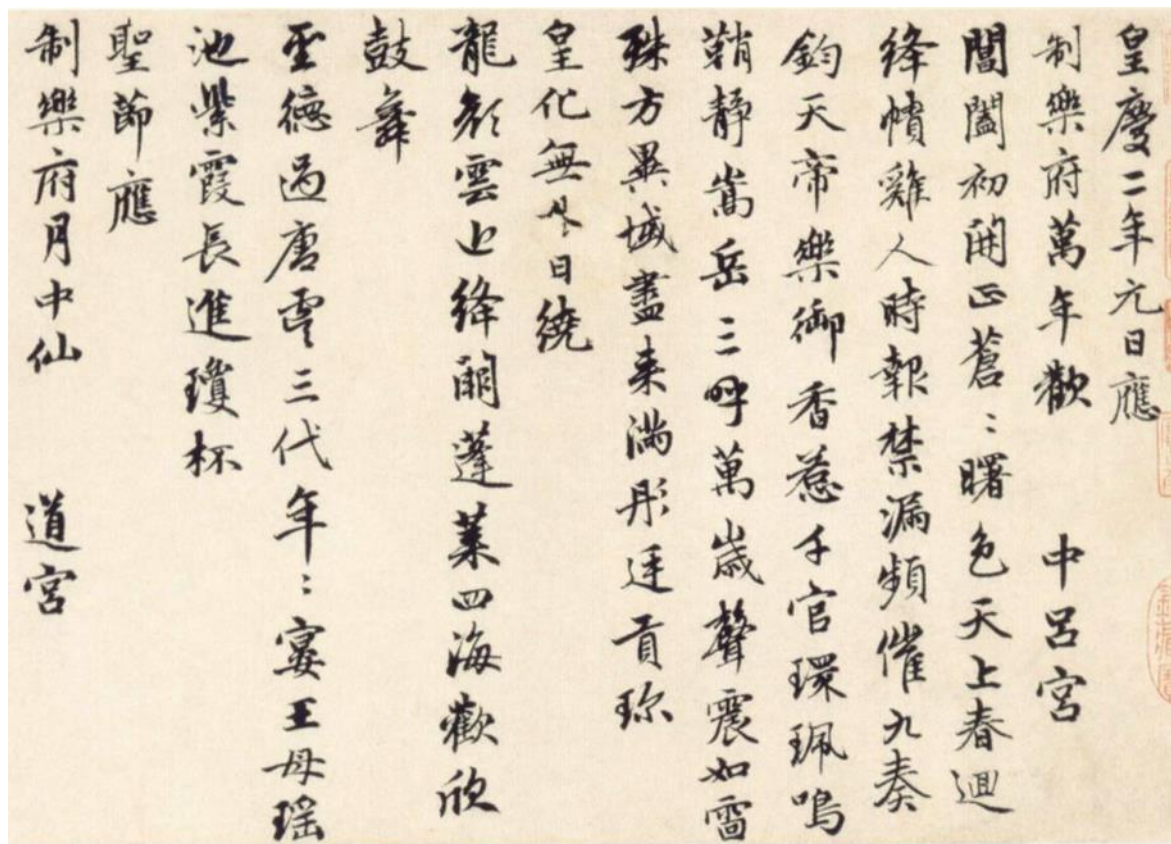 皇慶二年元日應
制樂府萬年歡 中呂宮
閶闔初開正蒼〻曙色天上春迴
絳幘雞人時報禁漏頻催九奏
鈞天帝樂御香惹千官環珮鳴
鞘靜嵩岳三呼萬歲聲震如雷
殊方異域盡来滿彤廷貢珎
皇化無外日繞
龍顏雲近絳闕蓬萊四海歡欣
鼓舞
聖德過唐虞三代年〻宴王母瑤
池紫霞長進瓊杯
聖節應
制樂府月中仙 道宮